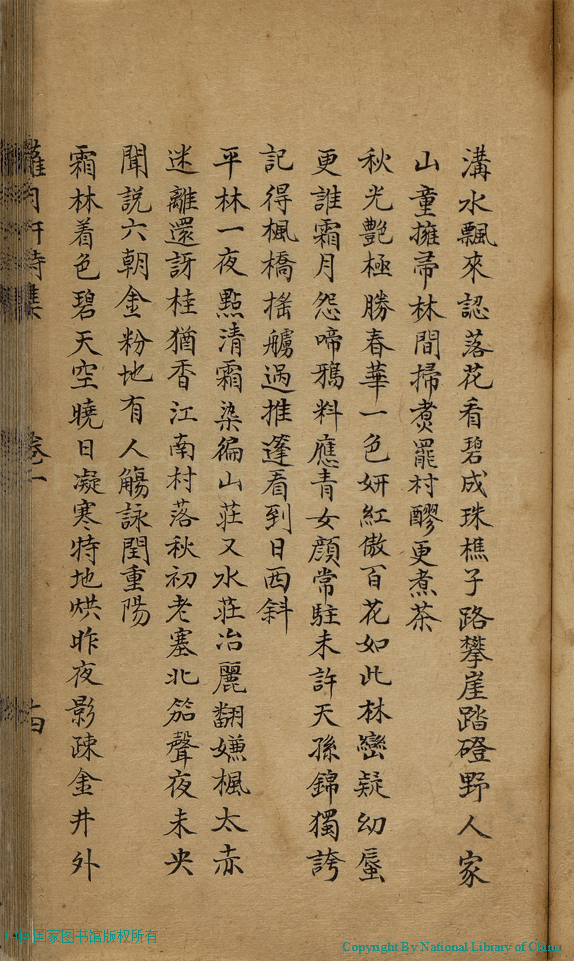 溝水飄來認落花看碧成珠樵子路攀崖踏磴野人家
山童擁帚林間掃煑罷村醪更煮茶
秋光艷極勝春華一色妍紅傲百花如此林巒疑幻蜃
更誰霜月怨啼鴉料應青女顏常駐未許天孫錦獨誇
記得楓橋搖艣過推蓬看到日西斜
平林一夜點清霜染徧山莊又水莊冶麗翻嫌楓太赤
迷離還訝桂猶香江南村落秋初老塞北笳聲夜未央
聞説六朝金粉地有人觴詠閏重陽
霜林着色碧天空曉日凝寒特地烘昨夜影疎金井外
卷一
中国国家图书馆版权所有
Copyright By National Library of China